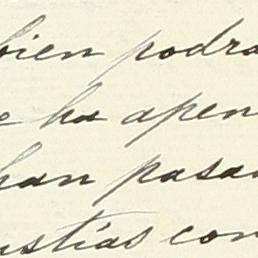 bien podra
e ha apen
han pasa
ustias con